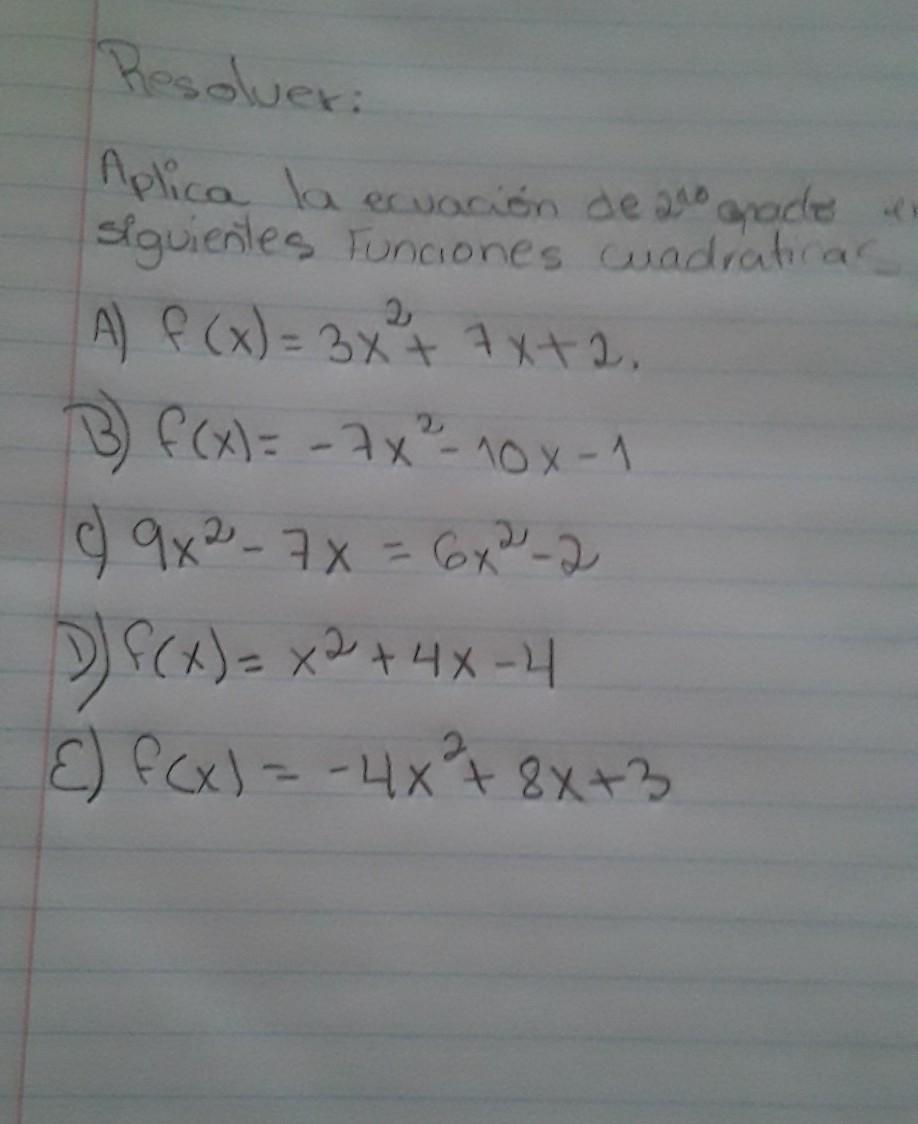 Resolver:
Aplica la ecuación de 2do grado en
siguientes Funciones cuadraticas
A) f(x) = 3x² + 7x + 2.
B) f(x) = -7x² - 10x - 1
C) 9x² - 7x = 6x² - 2
D) f(x) = x² + 4x - 4
E) f(x) = -4x² + 8x + 3